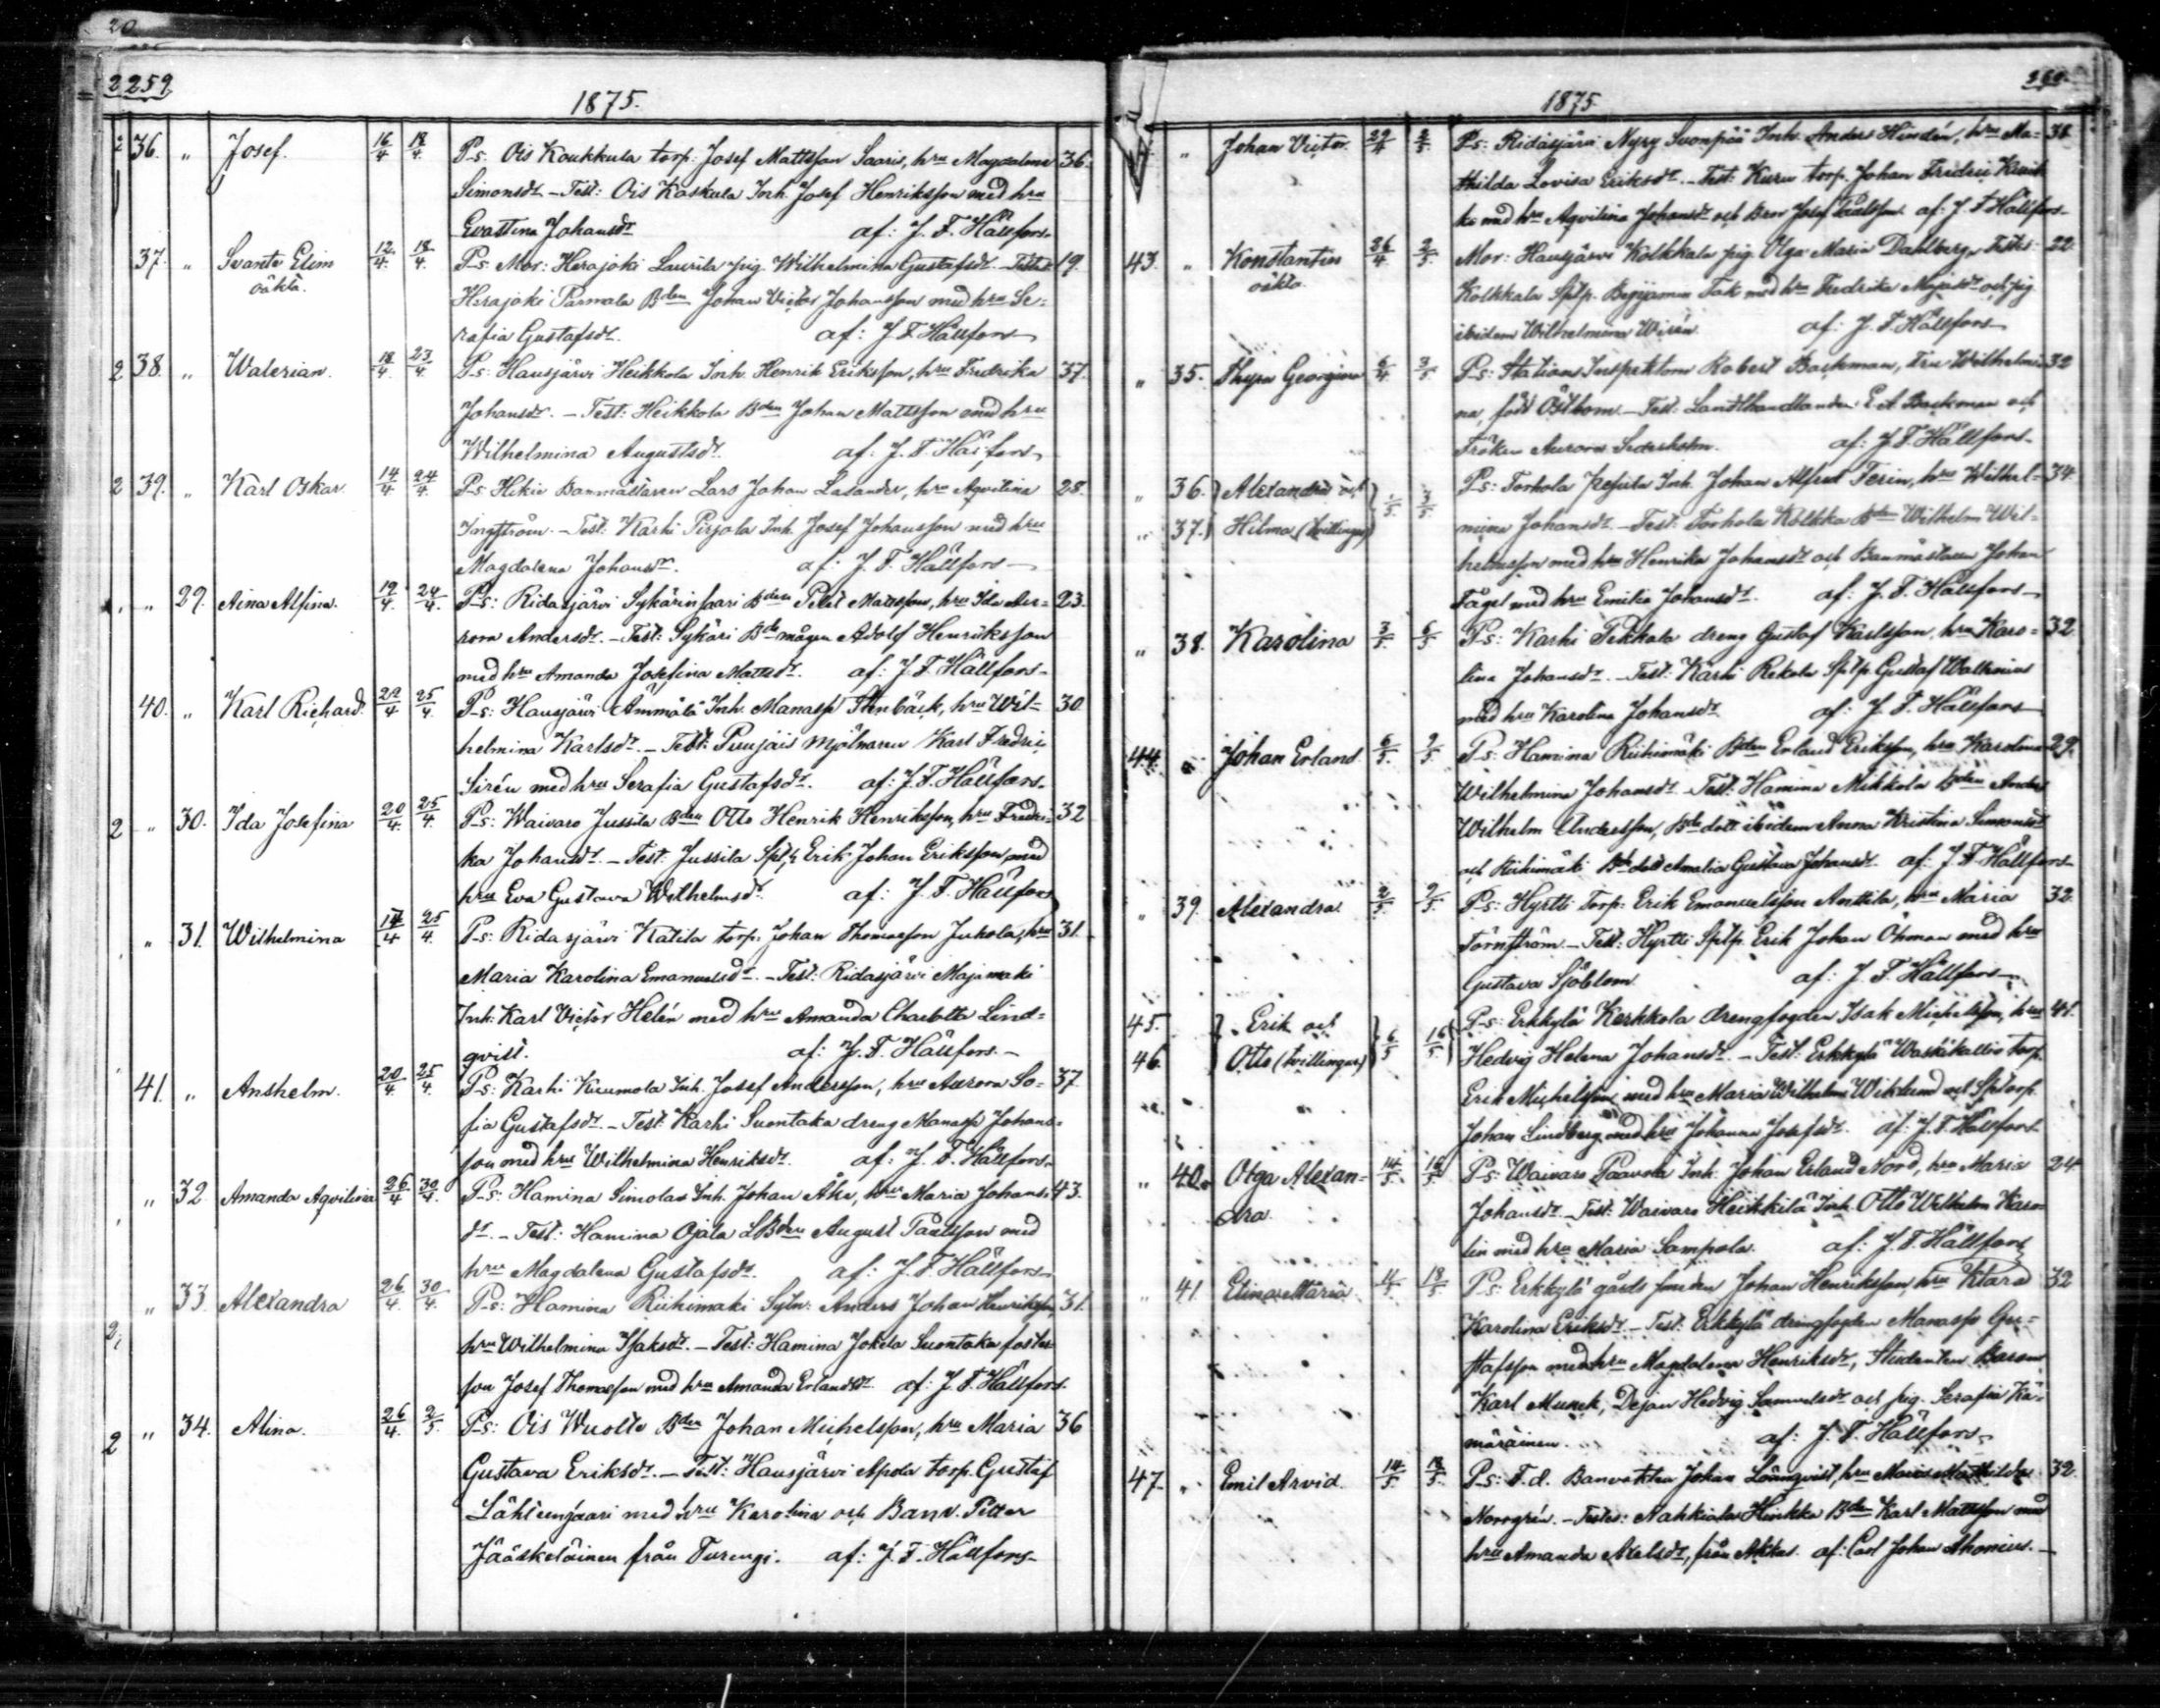 20
2259
1875.
2 36. „ Josef. 16/4 18/4. P-s. Ois Koukkula torp. Josef Mattsson Saaris, hru Magdalena 36.
Simonsdr. – Test: Ois Koskula Inh. Josef Henriksson med hru
Evastina Johansdr af: J. F. Hällfors.
37. „ Svante Elim 12/4. 18/4. P-s. Mor: Herajoki Laurila pig. Wilhelmina Gustafsdr. Testes: 19.
oäkta. Herajoki Parmala Bden Johan Victor Johansson med hru Se=
rafia Gustafsdr. af: J F. Hällfors
2 38. „ Walerian. 18/4. 23/4. P-s: Hausjärvi Heikkola Inh. Henrik Eriksson, hru Fredrika 37.
Johansdr. – Test: Heikkola Bden Johan Mattsson med hru
Wilhelmina Augustsdr. af: J. F. Hällfors
2 39. „ Karl Oskar. 14/4 24/4. P-s. Hikie Banmästaren Lars Johan Lasander, hru Aqvilina 28.
Ingström. – Test: Karhi Pirjola Inh. Josef Johansson med hru
Magdalena Johansdr. af: J. F. Hällfors –
„ 29. Aina Alfina. 19/4. 24/4. P-s: Ridasjärvi Sykärinsaari Bden Petter Mattsson, hru Ida Au= 23.
rora Andersdr. – Test: Sykäri Bdemågen Adolf Henriksson
med hru Amanda Josefina Mattsdr. af: J. F. Hällfors –
40. „ Karl Richard. 22/4 25/4. P-s: Hausjärvi Ämmälä Inh. Manasse Stenbäck, hru Wil= 30
helmina Karlsdr. – Test: Puujais Mjölnaren Karl Fredric
Sirén med hru Serafia Gustafsdr. af: J. F. Hällfors.
2 „ 30. Ida Josefina 20/4. 25/4. P-s: Waivaro Jussila Bden Otto Henrik Henriksson, hru Fredri= 32
ka Johansdr. – Test: Jussila Sptp. Erik Johan Eriksson, med
hru Eva Gustava Wilhelmsdr. af: J. F. Hällfors
„ 31. Wilhelmina 14/4 25/4. P-s: Ridasjärvi Katila torp: Johan Thomasson Juhola, hru 31.
Maria Karolina Emanuelsdr. – Test: Ridasjärvi Majamäki
Inh: Karl Victor Helén med hru Amanda Charlotta Lind=
qvist. af: J. F. Hällfors. –
41. „ Anshelm. 20/4. 25/4. P-s: Karhi Kuumola Inh. Josef Andersson, hru Aurora So= 37
fia Gustafsdr. – Test. Karhi Suontaka dreng Manasse Johans=
son med hru Wilhelmina Henriksdr. af: J. F. Hällfors.
„ 32 Amanda Aqvilina 26/4 30/4. P-s: Hamina Simolas Inh. Johan Åke, hru Maria Johans= 43.
dr. – Test: Hamina Ojala LBden August Paulsson med
hru Magdalena Gustafsdr. af: J F. Hällfors
2 „ 33. Alexandra 26/4. 30/4. P-s: Hamina Riihimäki Sytn. Anders Johan Henriksson, 31.
hru Wilhelmina Isaksdr. – Test: Hamina Jokela Suontaka foster=
son Josef Thomasson med hru Amanda Erlandsdr. af: J. F. Hällfors.
2 „ 34. Alina. 26/4. 2/5. P-s: Ois Wuolte Bden Johan Michelsson, hru Maria 36
Gustava Eriksdr. – Test: Hausjärvi Apola torp. Gustaf
Lähteensaari med hru Karolina och Banv. Petter
Jääskeläinen från Turengi. af: J. F. Hällfors –
1875
„ Johan Victor. 29/4 2/5. P-s: Ridasjärvi Nyry Suonpää Inh. Anders Hindén, hru Ma= 38.
thilda Lovisa Eriksdr. – Test: Kuru torp. Johan Fredric
med hru Aqvilina Johansdr och Bror Josef af: J F Hällfors –
43. „ Konstantin 26/4. 2/5. Mor: Hausjärvi Kolkkala pig. Olga Maria Dahlberg. Testes: 22.
oäkta. Kolkkala Sptp. Benjamin Tak med hru Fredrika och pig
ibidem Wilhelmina Wirén. af: J. F. Hällfors
„ 35. Thyra Georgina 6/4. 3/5. P-s: Stations Inspektorn Robert Backman, Fru Wilhelmi= 32
na, född Östbom. – Test: Landthandlanden E A Backman och
Fröken Aurora Sederholm. af: J F. Hällfors –
„ 36. Alexandra och 1/5. 3/5. P-s: Torhola Johan Alfred Ferin, hru Wilhel= 34
„ 37. Hilma (tvillingar) mina Johansdr. – Test: Torhola Kolkka Bden Wilhelm Wil=
helmsson med hru Henrika Johansdr och Banmästaren Johan
Fågel med hru Emilia Johansdr. af: J. F. Hällfors –
„ 38. Karolina 3/5. 6/5 P-s: Karhi Pekkala dreng Gustaf Karlsson, hru Karo= 32
lina Johansdr. – Test: Karhi Rekola Sptp. Gustaf
med hru Karolina Johansdr af: J. F. Hällfors
44. „ Johan Erland 6/5. 9/5. P-s: Hamina Riihimäki Bden Erland Eriksson, hru Karolina 29.
Wilhelmina Johansdr. Test: Hamina Mikkola Bden Anders
Wilhelm Andersson, Bde dott ibidem Anna Kristina Simonsdr
och Riihimäki Bde dott Amalia Gustava Johansdr. af: J. F. Hällfors
„ 39. Alexandra 2/5. 9/5. P-s: Hyrtti Torp: Erik Emanuelsson Anttila, hru Maria 32.
Törnström. – Test: Hyrtti Sptp. Erik Johan Öhman med hru
Gustava Sjöblom. af: J. F. Hällfors –
45. „ Erik och 6/5 16/5 P-s: Erkkylä Kerkkola drengfogden Isak Michelsson, hru 41.
46. Otto (tvillingar) Hedvig Helena Johansdr. – Test: Erkkylä Waskikallio torp.
Erik Michelsson med hru Maria Wilhelmina Wiklund och Sptorp.
Johan Lindberg med hru Johanna Josefsdr. af: J. F. Hällfors
„ 40. Olga Alexan= 14/5. 16/5 P-s. Waivaro Paavola Inh. Johan Erland Nord, hru Maria 24
dra. Johansdr. – Test: Waivaro Heikkilä Inh. Otto Wilhelm Karo
lin med hru Maria Sampola. af: J. F. Hällfors
„ 41. Elina Maria 11/5. 18/5 P-s: Erkkylä gårds smeden Johan Henriksson, hru Klara 32
Karolina Eriksdr. – Test: Erkkylä drengfogden Manasse Gu=
stafsson med hru Magdalena Henriksdr, Studenten Baron
Karl Munck, Dejan Hedvig Samuelsdr och pig. Serafia Kä=
märäinen. af: J. F. Hällfors
47. „ Emil Arvid. 14/5. 18/5. P-s: T. d. Banvakten Johan Lönnqvist, hru Maria Mathilda 32.
Norrgrén. – Testes: Nahkiala Hinkka Bden Karl Mattsson med
hru Amanda Axelsdr, från Akkas. af: Carl Johan Ahonius. –